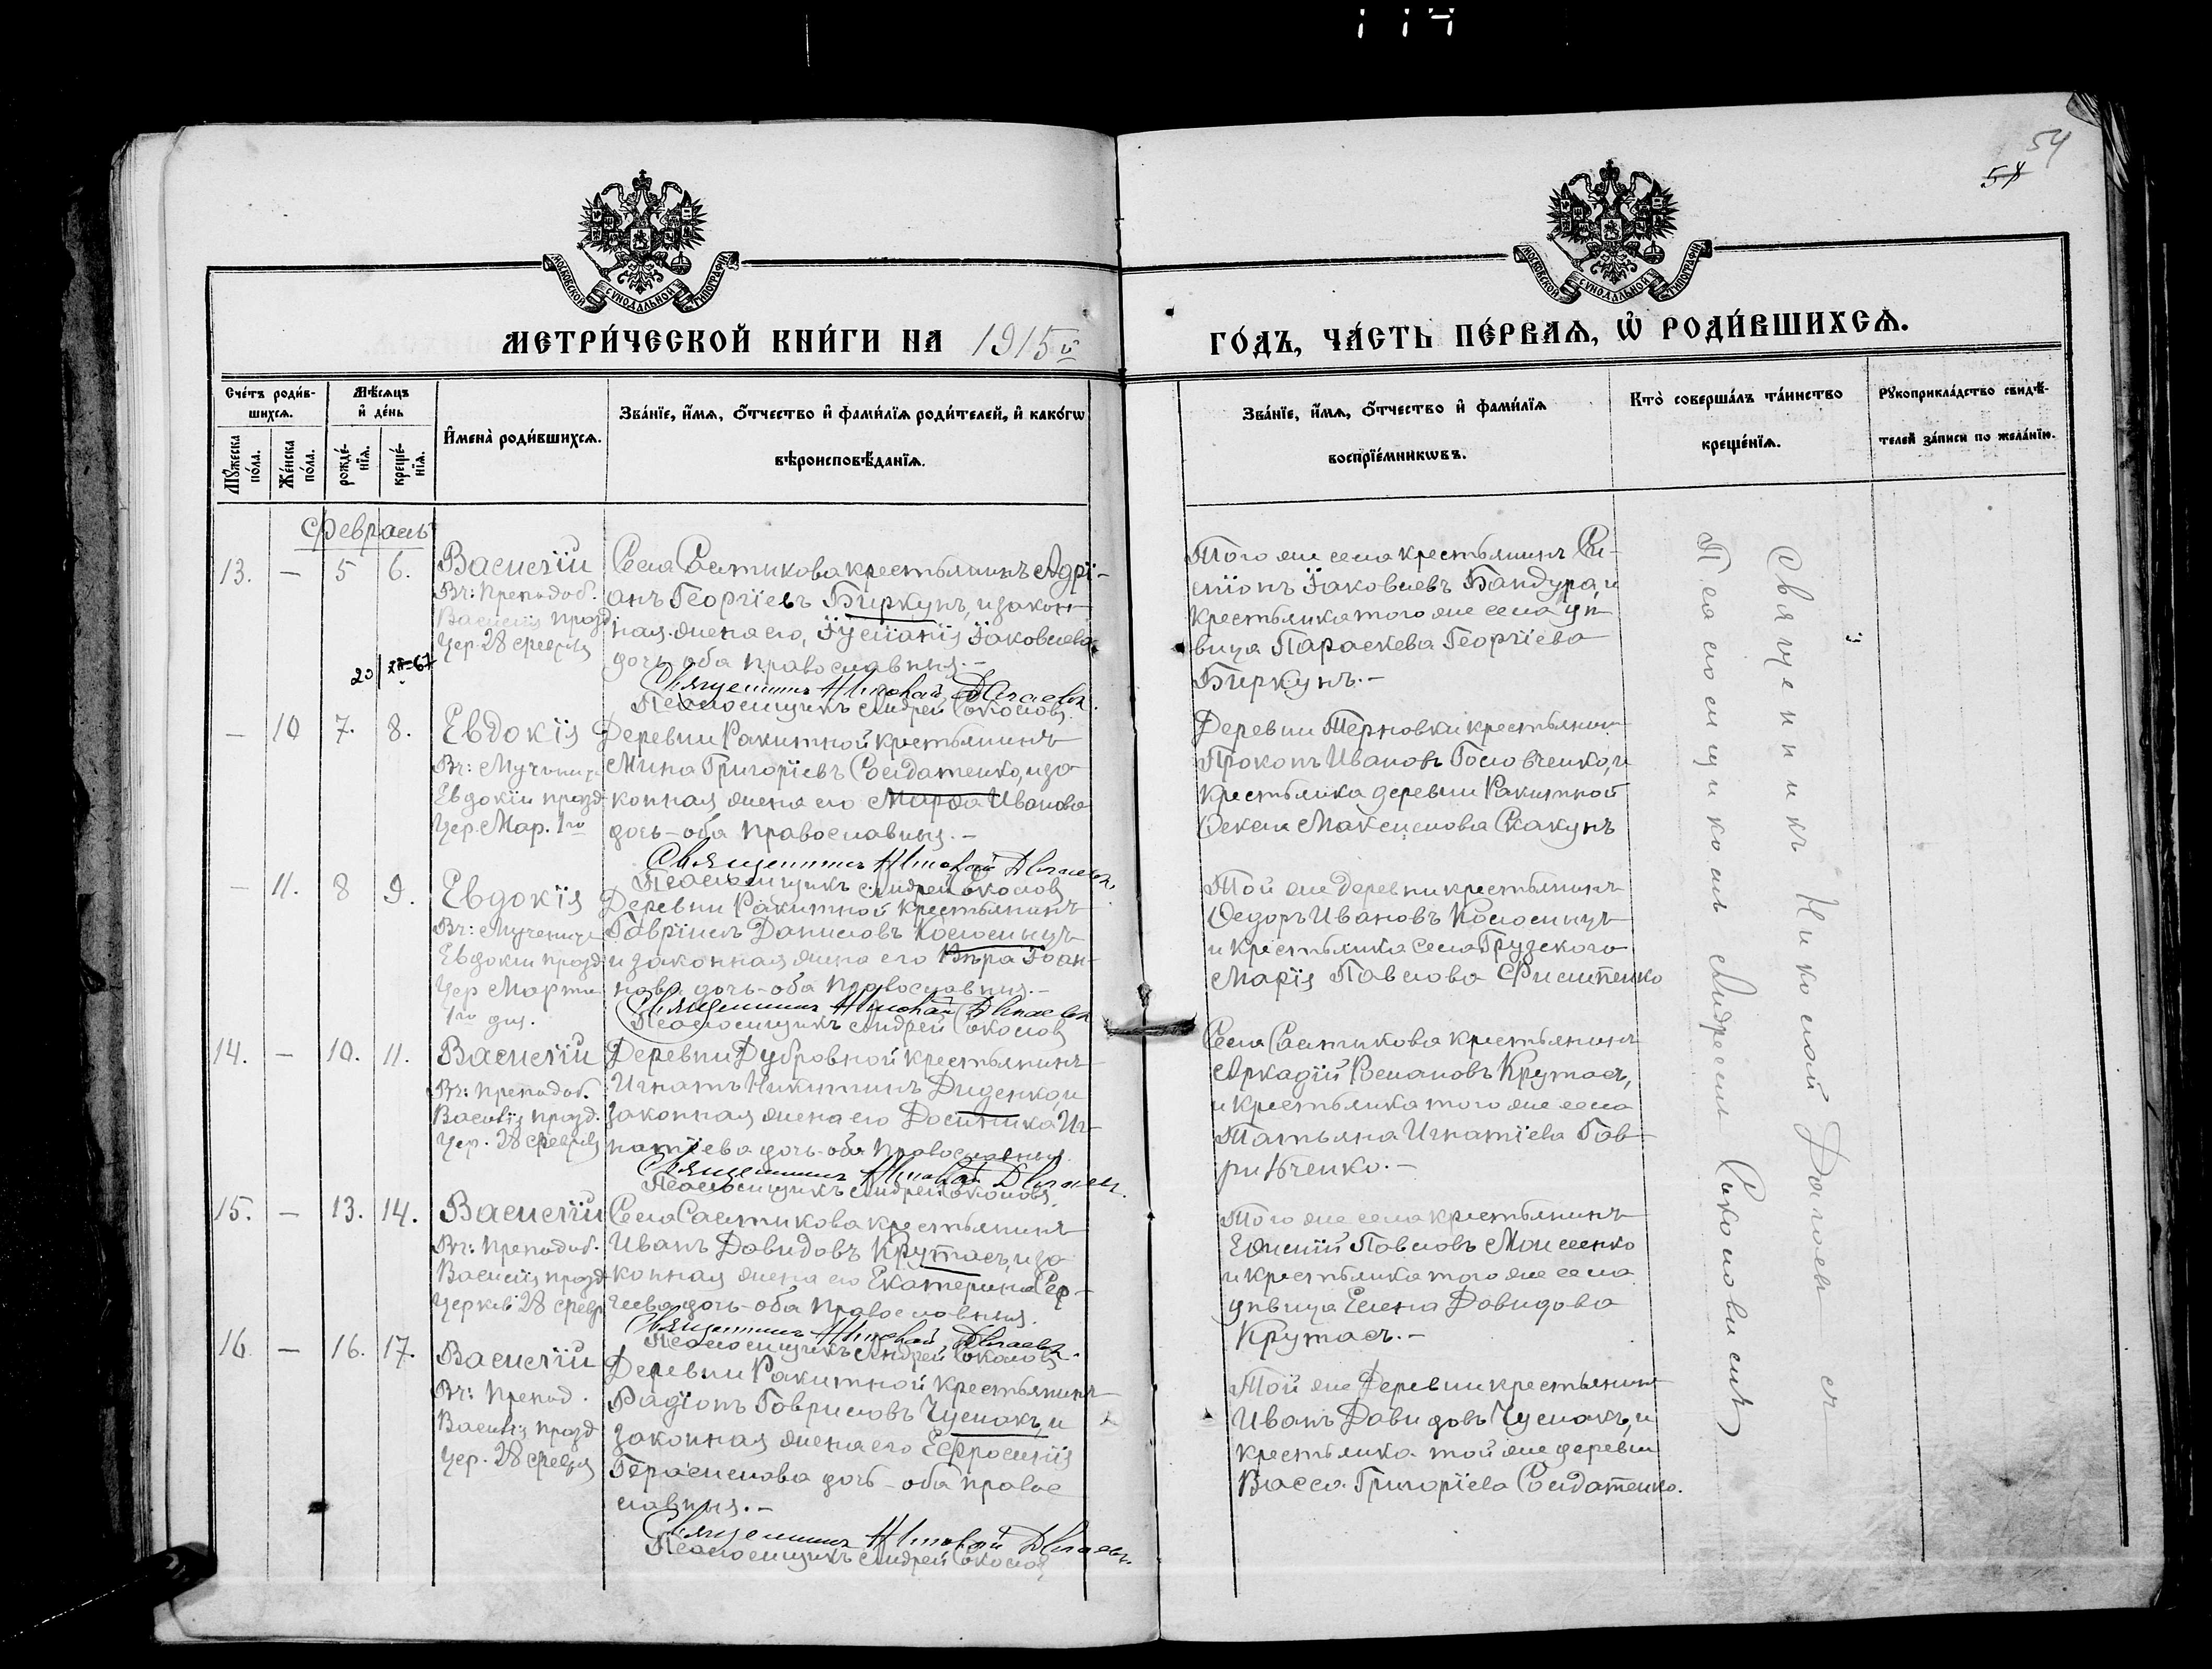 114
54
54
МОСКОВСКОЙ СУНОДАЛЬНОЙ ТИПОГРАФІИ
МОСКОВСКОЙ СУНОДАЛЬНОЙ ТИПОГРАФІИ
МЕТРИ́ЧЕСКОЙ КНИ́ГИ НА 1915й ГО́ДЪ, ЧА́СТЬ ПЕ́РВАѦ, Ѽ РОДИ́ВШИХСѦ.
Сче́тъ роди́вшихсѧ.
Мꙋ́жеска по́ла.
Же́нска по́ла.
Мѣ́сѧцъ и҆ де́нь
рожде́нїѧ.
креще́нїѧ.
И҆мена̀ роди́вшихсѧ.
Зва́нїе, и҆́мѧ, ѻ҆́тчество и҆ фами́лїѧ роди́телей, и҆ како́гѡ
вѣроисповѣ́данїѧ.
Зва́нїе, и҆́мѧ, ѻ҆́тчество и҆ фами́лїѧ
воспрїе́мникѡвъ.
Кто̀ соверша́лъ та́инство
креще́нїѧ.
Рꙋкоприкла́дство свидѣ́-
телей за́писи по жела́нїю.
Февраль
13. — 5 6. Василій
Въ: Преподоб.
Василія празд
Цер. 28 февраля
20
Села Састикова крестьянинъ Адрі-
анъ Георгіевъ Биркунъ, и закон-
ная жена его, Іуліанія Іаковлева
дочь - оба православныя. —
Священникъ Николай
Псаломщикъ Андрей Соколовъ
Того же села крестьянинъ Си-
міонъ Іаковлевъ Бандура, и
крестьянка того же села дѣ-
вица Параскева Георгіева
Биркунъ. —
— 10 7. 8. Евдокія
Въ: Мучениц
Евдокіи празд
Цер. Мар. 1го
Деревни Ракитной крестьянинъ
Мина Григоріевъ Солдатенко, и за-
конная жена его Марѳа Иванова
дочь - оба православныя. —
Священникъ Николай
Псаломщикъ Андрей Соколовъ
Деревни Терновки крестьянин
Прокопъ Ивановъ Головченко, и
крестьянка деревни Ракитной
Ѳекла Максимова Скакунъ
— 11. 8 9. Евдокія
Въ: Мученицы
Евдокіи празд
Цер Марта
1го дня.
Деревни Ракитной крестьянинъ
Гавріилъ Даниловъ Коломыецъ
и законная жена его Вѣра Іоан-
нова дочь - оба православныя. —
Священникъ Николай
Псаломщикъ Андрей Соколовъ
Той же деревни крестьянинъ
Ѳедоръ Ивановъ Коломыецъ
и крестьянка села Грузского
Марія Павлова Филипенко
14. — 10. 11. Василій
Въ: Преподоб.
Василія празд.
Цер. 28 февраля
Деревни Дубровной крестьянинъ
Игнатъ Никитинъ Диденко, и
законная жена его Домникія Иг-
натіева дочь - оба православныя.
Священникъ Николай
Псаломщикъ Андрей Соколовъ
Села Састикова крестьянинъ
Аркадій Романовъ Крутась,
и крестьянка того же села
Татьяна Игнатіева Гав-
рильченко. —
15. — 13. 14. Василій
Въ: Преподоб.
Василія празд
Церкві 28 февр
Села Састикова крестьянинъ
Иванъ Давидовъ Крутась, и за-
конная жена его Екатерина Сер-
гіева дочь - оба православныя.
Священникъ Николай
Псаломщикъ Андрей Соколовъ
Того же села крестьянинъ
Павловъ Моисеенко
и крестьянка того же села
дѣвица Елена Давидова
Крутась. —
16 — 16. 17. Василій
Въ: Препод.
Василія празд
Цер. 28 февраля
Деревни Ракитной крестьянинъ
Радіонъ Гавриловъ Чумакъ, и
законная жена его Ефросинія
Герасимова дочь - оба правос
лавныя. —
Священникъ Николай
Псаломщикъ Андрей Соколовъ
Той же деревни крестьянинъ
Иванъ Давидовъ Чумакъ, и
крестьянка той же деревни
Васса Григоріева Солдатенко.
Священникъ Николай
Псаломщикомъ Андреемъ Соколовымъ